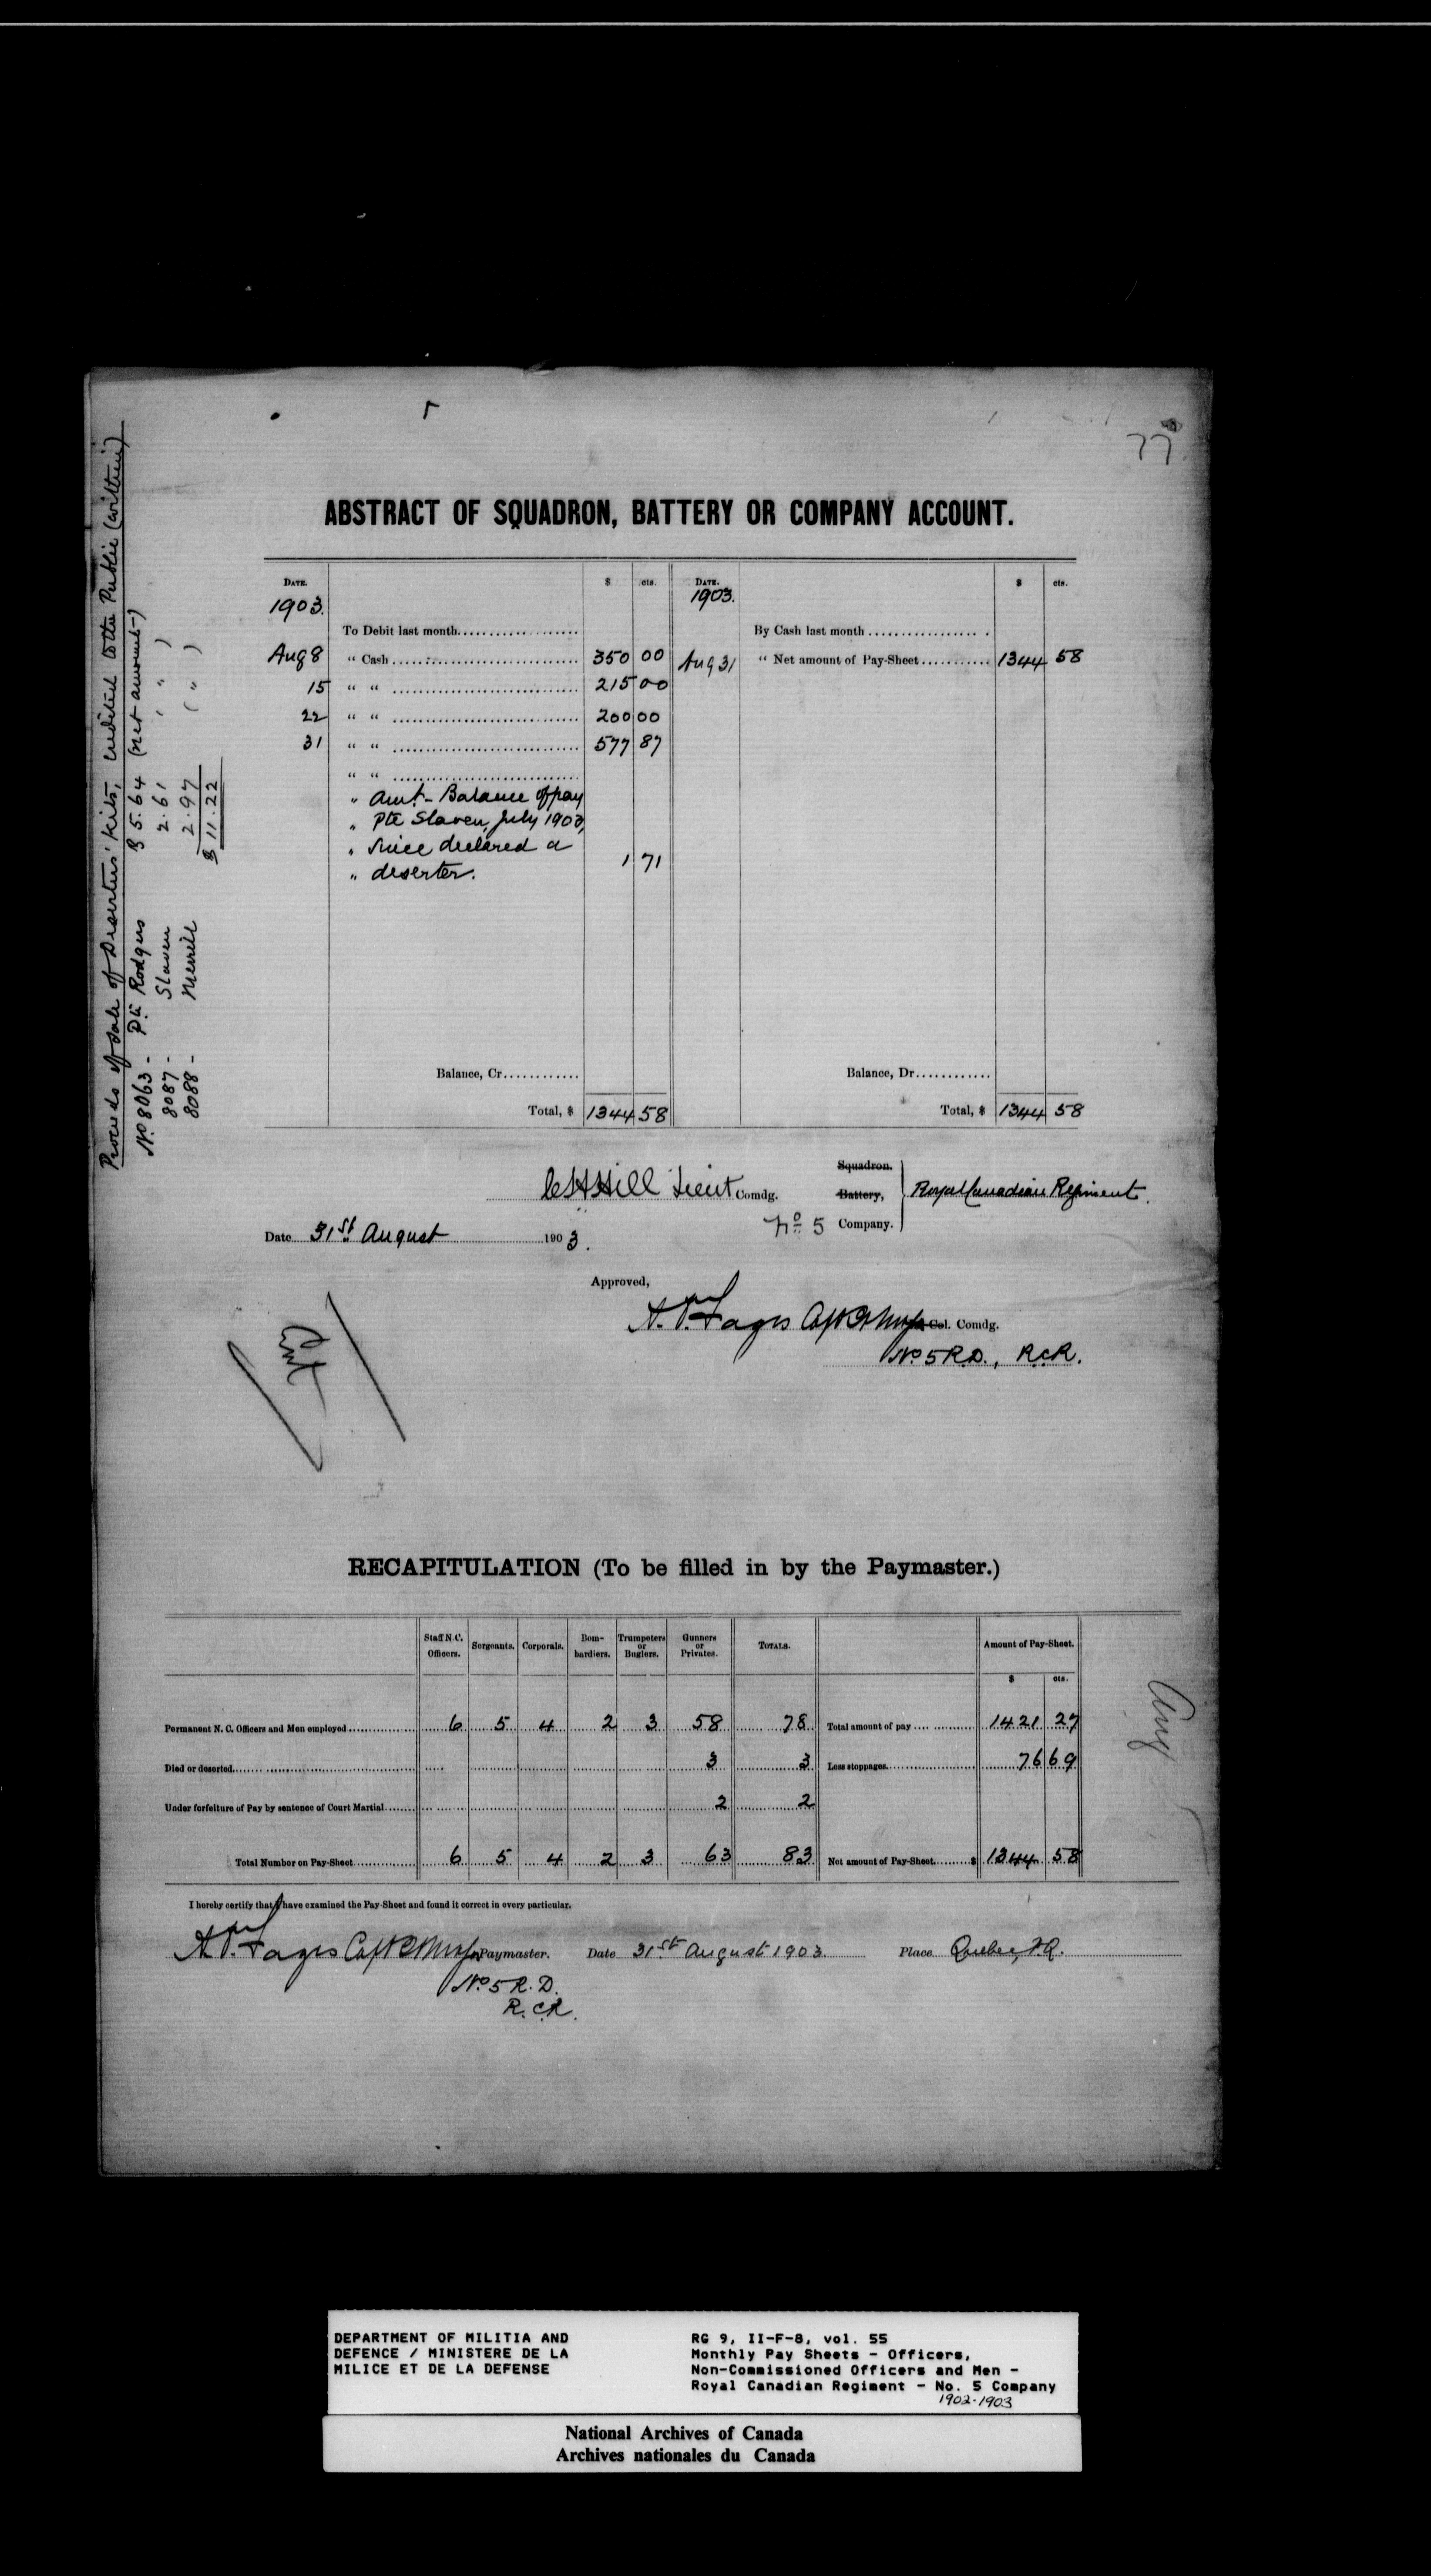 77
Proceeds of Sale of Deserters' Kits, credited to the Public (within)
No 8063 - Pte Rodgers $ 5.64 (net amount)
8087 - Slaven 2.61 ( " )
8088 - Merrill 2.97 ( " )
$ 11.22
ABSTRACT OF SQUADRON, BATTERY OR COMPANY ACCOUNT.
DATE. $ cts. DATE. $ cts.
1903. 1903.
To Debit last month By Cash last month
Aug 8 " Cash 350 00 Aug 31 " Net amount of Pay-Sheet 1344 58
15 " " 215 00
22 " " 200 00
31 " " 577 87
" "
" Amt- Balance of pay
" Pte Slaven, July 1903,
" since declared a
" deserter. 1 71
Balance, Cr. Balance, Dr.
Total, $ 1344 58 Total, $ 1344 58
Squadron.
C H Hill Lieut Comdg. Battery, Royal Canadian Regiment.
No 5 Company.
Date 31st August 1903.
Approved,
Col. Comdg.
No 5 R.D., R.C.R.
RECAPITULATION (To be filled in by the Paymaster.)
Staff N.C. Officers. Sergeants. Corporals. Bom-bardiers. Trumpeters or Buglers. Gunners or Privates. TOTALS. Amount of Pay-Sheet.
$ cts.
Permanent N. C. Officers and Men employed 6 5 4 2 3 58 78 Total amount of pay 1421 27
Died or deserted 3 3 Less stoppages 76 69
Under forfeiture of Pay by sentence of Court Martial 2 2
Total Number on Pay-Sheet 6 5 4 2 3 63 83 Net amount of Pay-Sheet $ 1344 58
Aug
I hereby certify that I have examined the Pay-Sheet and found it correct in every particular.
Paymaster. Date 31st August 1903 Place Quebec, P.Q.
No 5 R.D.
R.C.R.
DEPARTMENT OF MILITIA AND
DEFENCE / MINISTERE DE LA
MILICE ET DE LA DEFENSE
RG 9, II-F-8, vol. 55
Monthly Pay Sheets - Officers,
Non-Commissioned Officers and Men -
Royal Canadian Regiment - No. 5 Company
1902-1903
National Archives of Canada
Archives nationales du Canada